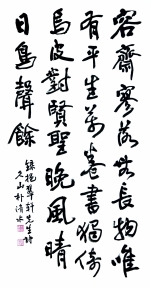 容齋寥落無長物唯
有平生萬卷書獨倚
烏皮對賢聖晚風晴
日鳥聲餘
錄楊翠軒先生詩
久山朴清